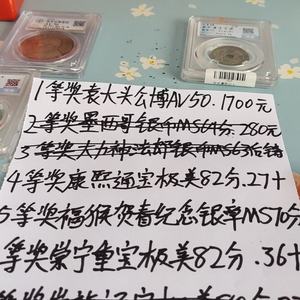 1等奖袁大头公博AU50.1700元
2等奖墨西哥银币MS64分.280元
3等奖大力神法郎银币MS63后铸
4等奖康熙通宝极美82分.27+
5等奖福猴贺春纪念银章MS70分
等奖崇宁重宝极美82分.36+